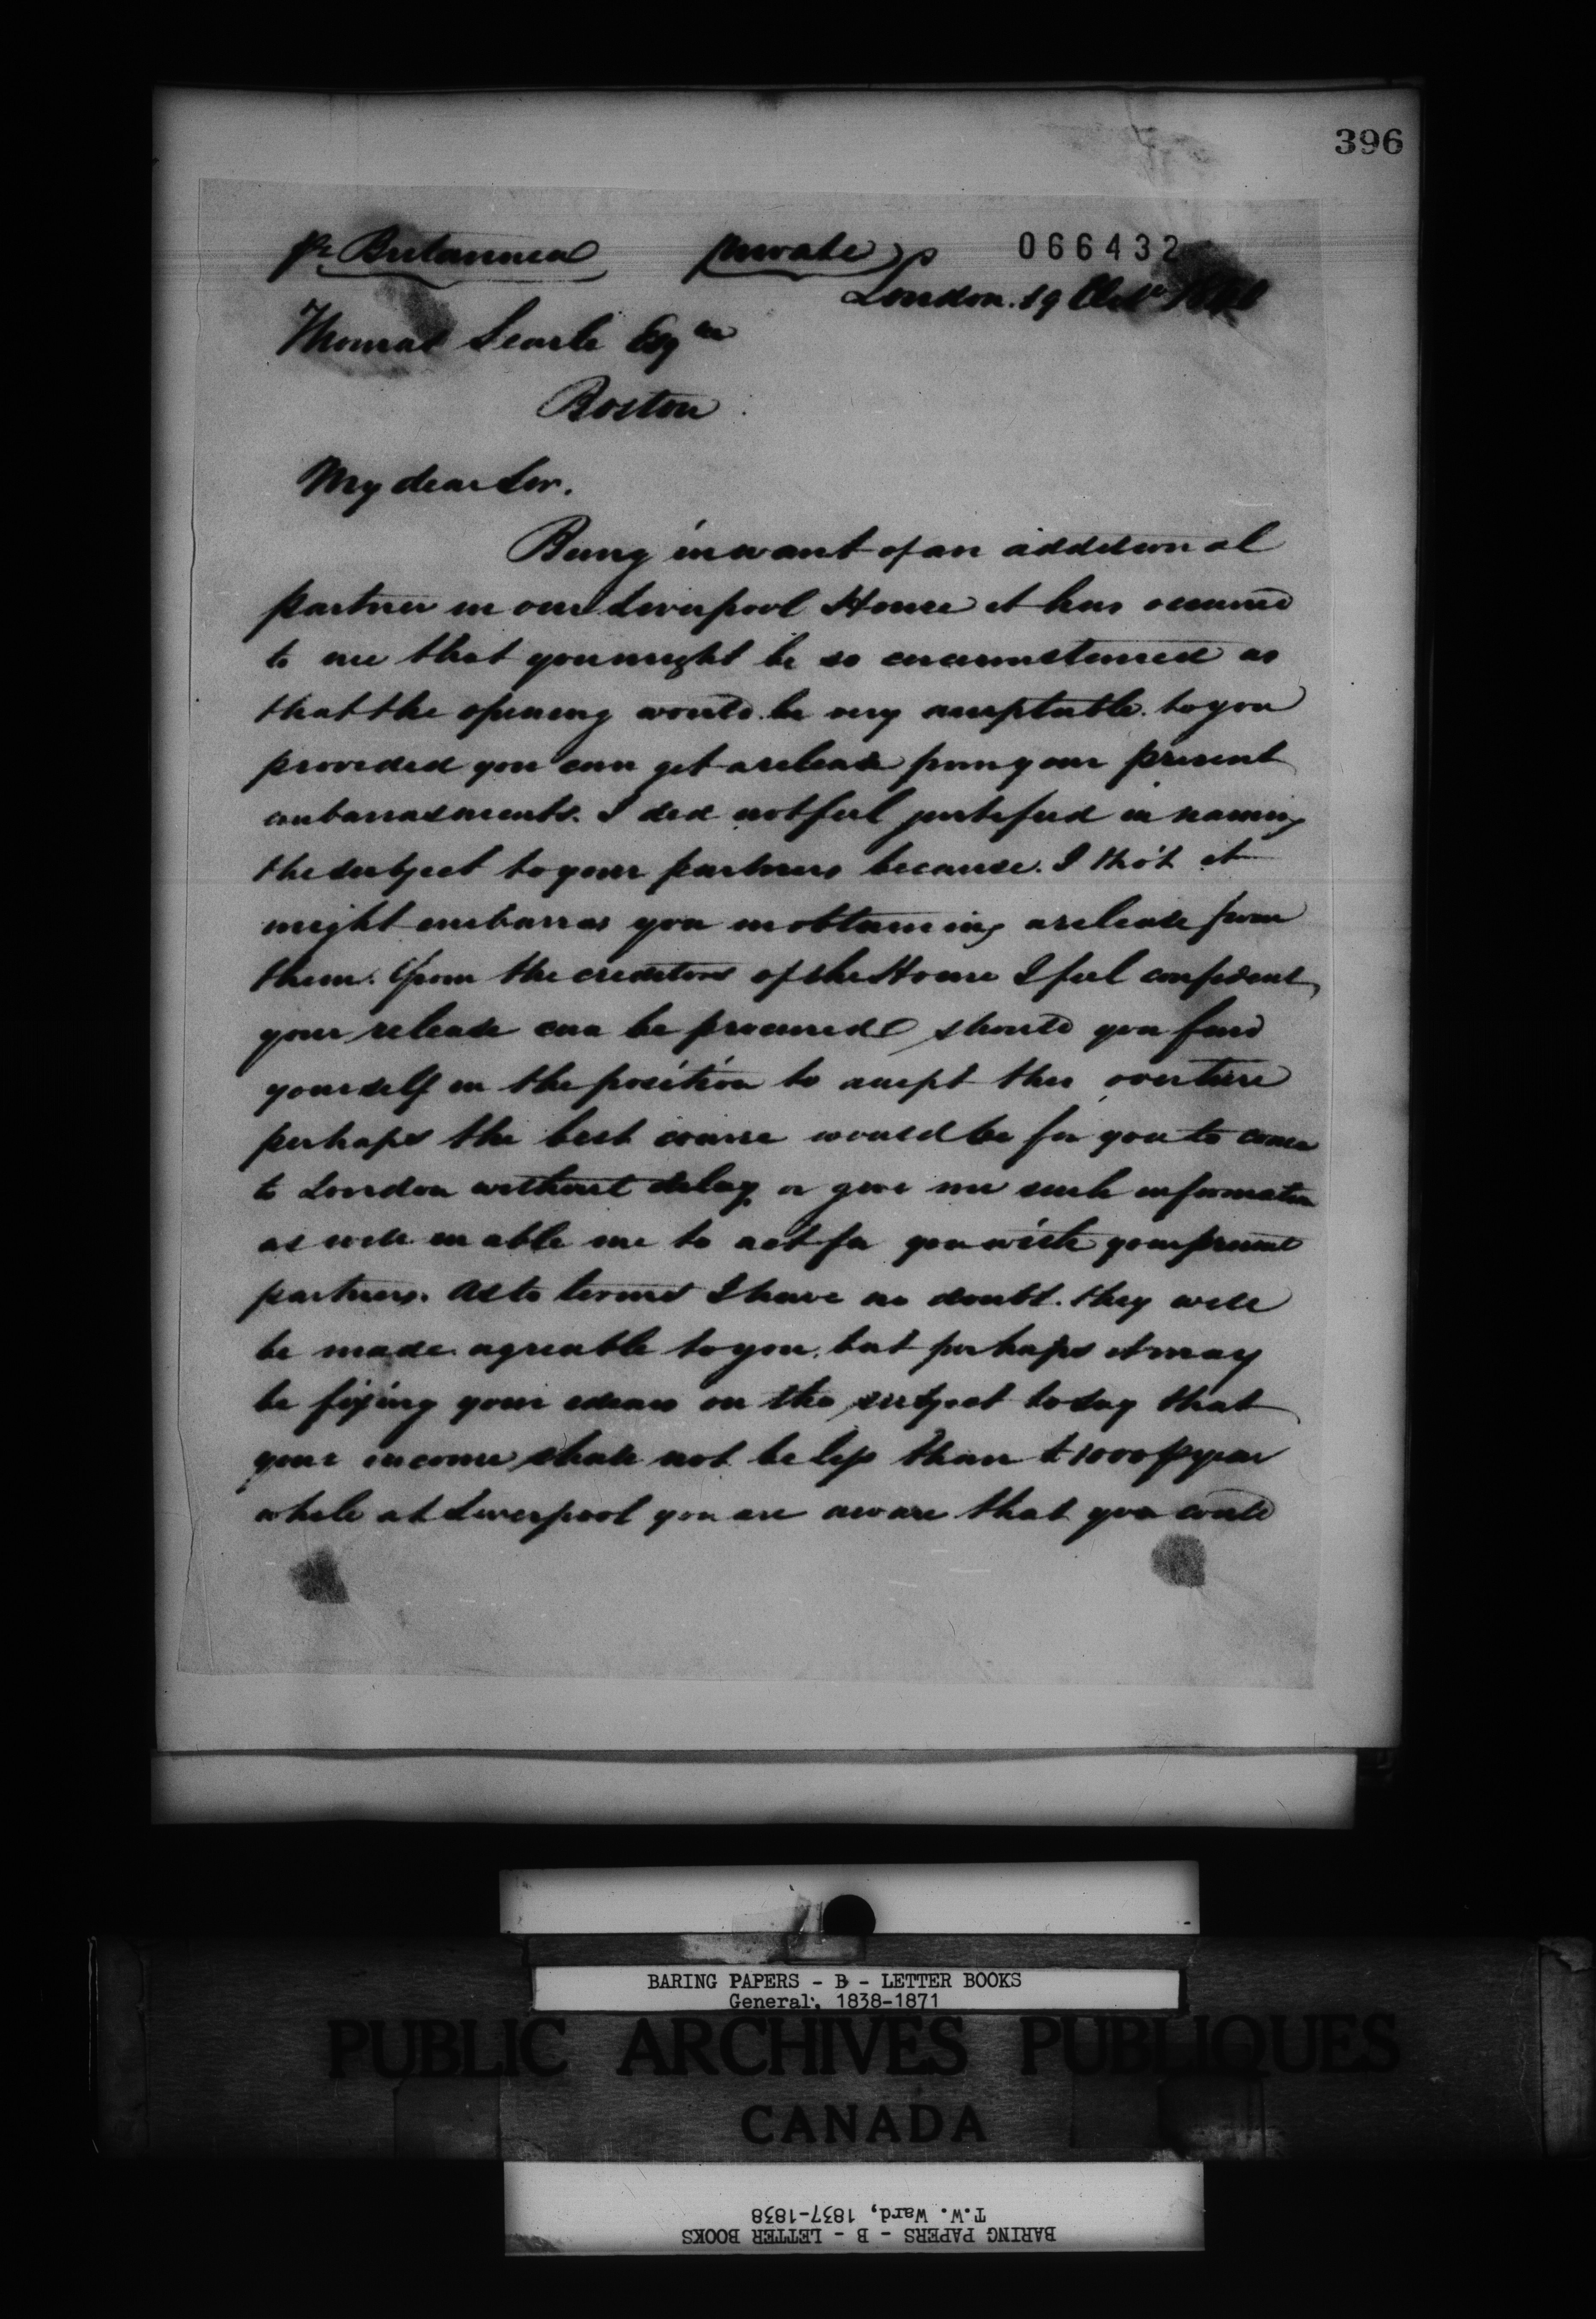 396
pr Britannia Private 066432
London. 19 Octr
Thomas Searle Esqre
Boston
My dear Sir.
Being in want of an additional
partner in our Liverpool House it has occurred
to me that you might be so circumstanced as
that the opening would be very acceptable to you
provided you can get a release from your present
embarrasments. I did not feel justified in naming
the subject to your partners because. I tho't it
might embarras you in obtaining a release from
them. From the creditors of the House I feel confident
your release can be procured should you find
yourself in the position to accept this overture
perhaps the best course would be for you to come
to London without delay or give me such information
as will enable me to act for you with your present
partners. As to terms I have no doubt. they will
be made agreable to you. but perhaps it may
be fixing your ideas on the subject to say that
your income shall not be less than £1000 p year
while at Liverpool you are aware that you could
BARING PAPERS - B - LETTER BOOKS
General, 1838-1871
PUBLIC ARCHIVES PUBLIQUES
CANADA
BARING PAPERS - B - LETTER BOOKS
T.W. Ward, 1837-1838